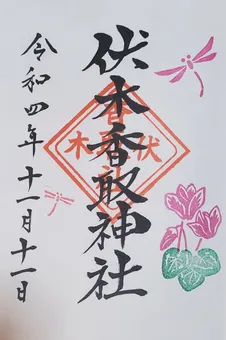 伏木香取神社
令和四年十一月十一日
伏
木